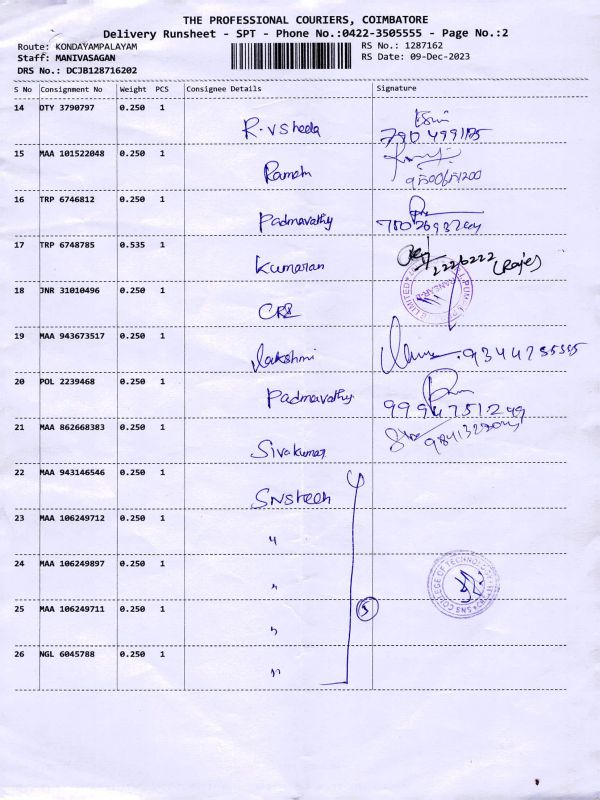 THE PROFESSIONAL COURIERS, COIMBATORE
Delivery Runsheet - SPT - Phone No.:0422-3505555 - Page No.:2
Route: KONDAYAMPALAYAM
Staff: MANIVASAGAN
DRS No.: DCJB128716202
RS No.: 1287162
RS Date: 09-Dec-2023
S No Consignment No Weight PCS Consignee Details Signature
14 OTY 3790797 0.250 1
R.V Sheela
15 MAA 101522048 0.250 1
Ramesh
16 TRP 6746812 0.250 1
Padmavathy
17 TRP 6748785 0.535 1
Kumaran 2226222 (Rajes)
18 JNR 31010496 0.250 1
19 MAA 943673517 0.250 1
Lakshmi
20 POL 2239468 0.250 1
Padmavathy
9994751249
21 MAA 862668383 0.250 1
Sivakumar
22 MAA 943146546 0.250 1
SNStech
23 MAA 106249712 0.250 1
"
24 MAA 106249897 0.250 1
"
25 MAA 106249711 0.250 1
" 5
26 NGL 6045788 0.250 1
"
SNS COLLEGE OF TECHNOLOGY